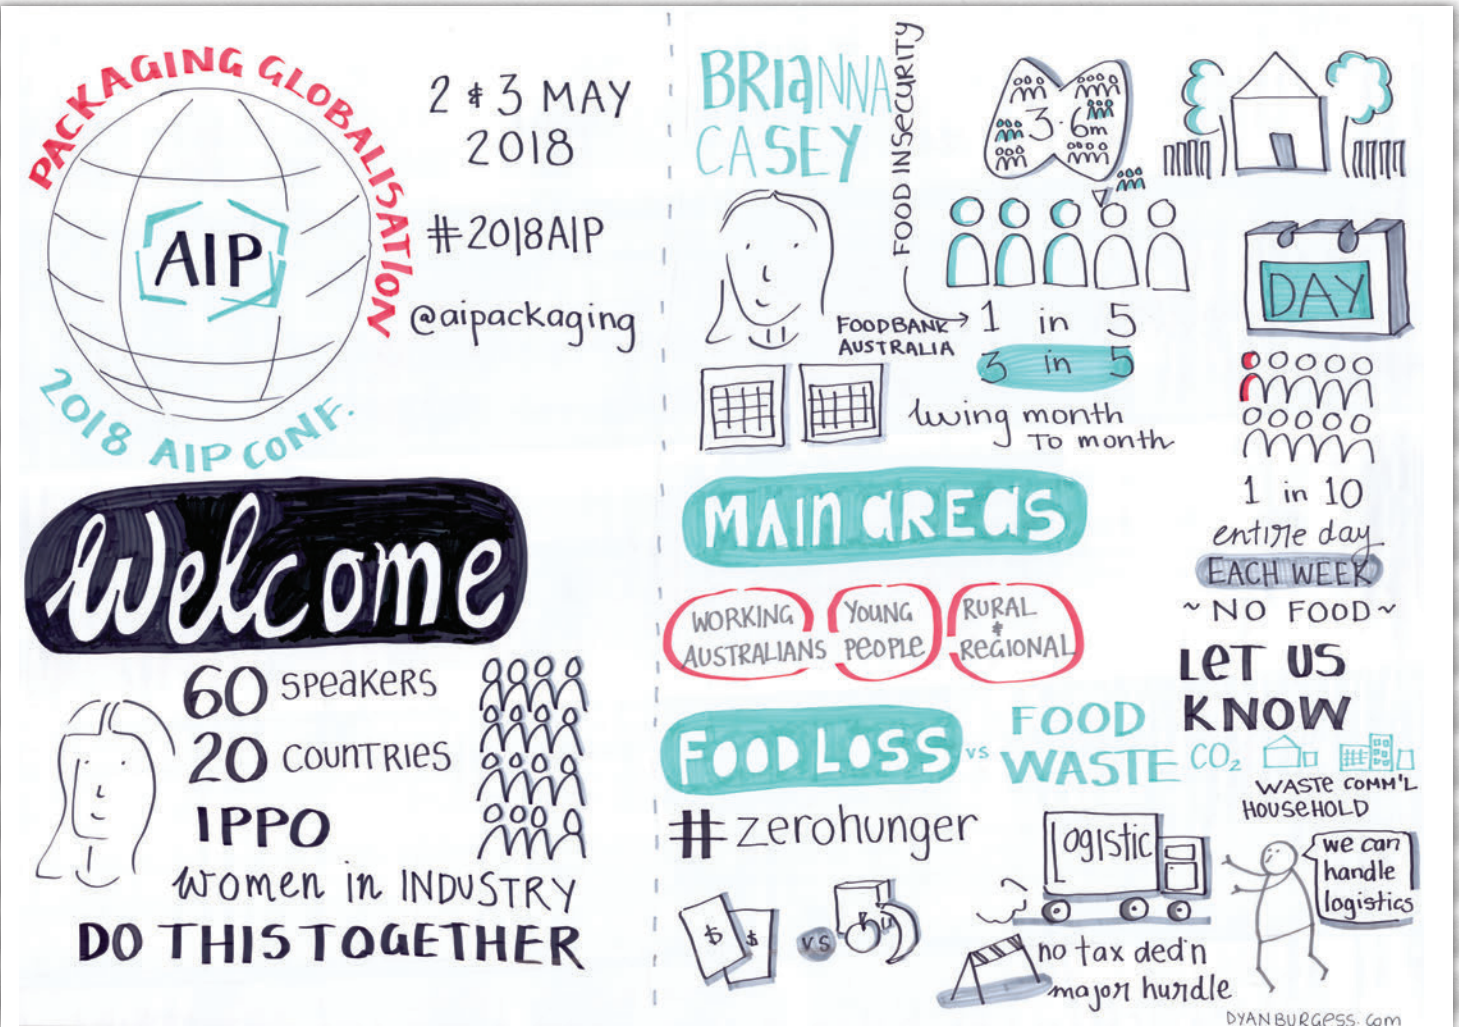 PACKAGING GLOBALISATION
AIP
2018 AIP CONF.
2 & 3 MAY
2018
#2018AIP
@aipackaging
Welcome
60 SPEAKERS
20 COUNTRIES
IPPO
women in INDUSTRY
DO THIS TOGETHER
BRIANNA
CASEY
FOOD INSECURITY
3.6m
FOODBANK
AUSTRALIA
1 in 5
3 in 5
living month
TO month
DAY
1 in 10
entire day
EACH WEEK
~ NO FOOD ~
MAIN AREAS
WORKING
AUSTRALIANS
YOUNG
PEOPLE
RURAL
&
REGIONAL
LET US
KNOW
FOOD LOSS vs FOOD
WASTE
CO₂
WASTE COMM'L
HOUSEHOLD
#zerohunger
$ $ VS
Logistic
we can
handle
logistics
no tax ded'n
major hurdle
DYANBURGESS.com